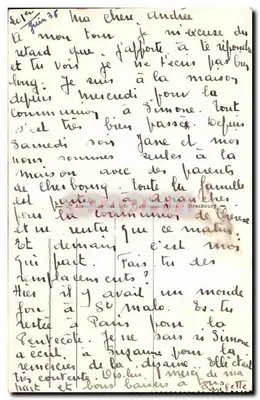 Le 1er
Juin 38
Ma chère Andrée
A mon tour je m'excuse du
retard que j'apporte à te répondre
et tu vois je ne t'écris pas bien
long. Je suis à la maison
depuis mercredi pour la
communion à Simone. tout
s'est très bien passé. Depuis
Samedi soir Jane et moi
nous sommes seules à la
maison avec des parents
de Cherbourg toute la famille
est partie à avranches
pour la communion de
et ne rentre que ce matin.
Et demain c'est moi
qui part. Fais tu des
remplacements?
Hier il y avait un monde
fou à St malo. Es-tu
restée à Paris pour la
Pentecôte. Je ne sais si Simone
a écrit à Suzanne pour la
remercier de la dizaine. Elle était
très contente. Dis-lui merci de ma
part et bons baisers à